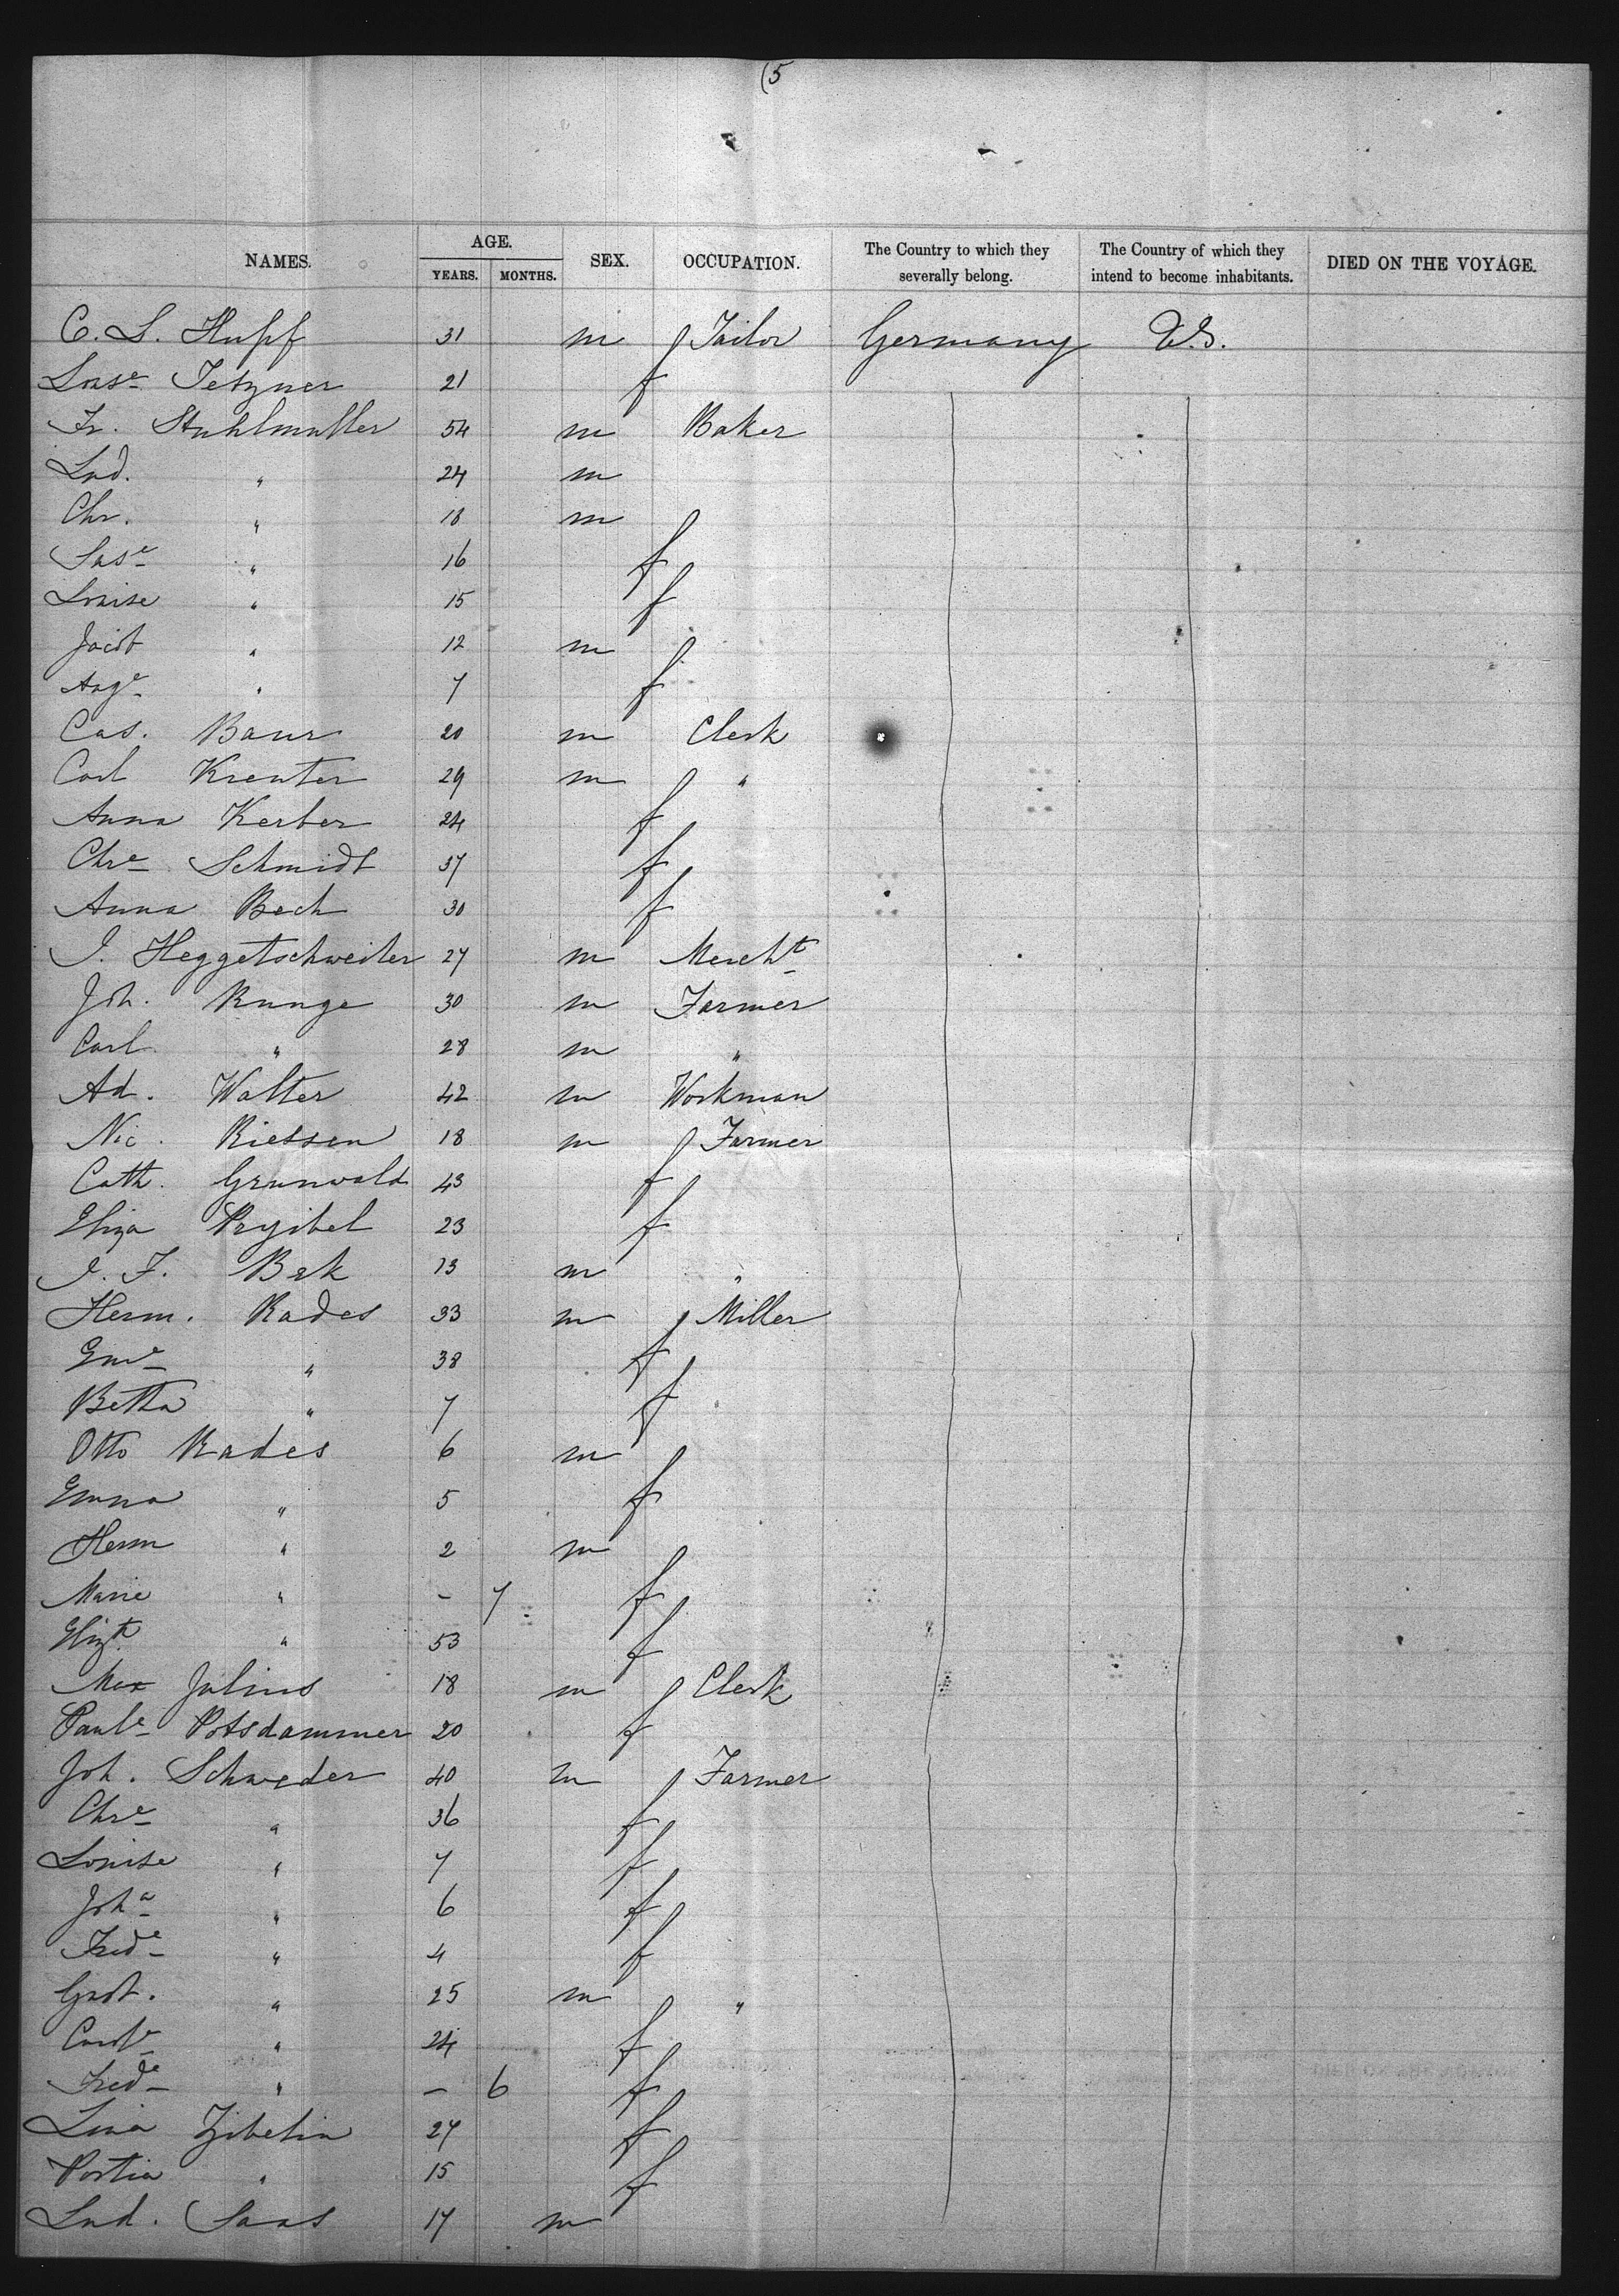 (5
NAMES. AGE. YEARS. MONTHS. SEX. OCCUPATION. The Country to which they severally belong. The Country of which they intend to become inhabitants. DIED ON THE VOYAGE.
C. L. Hupf 31 m Tailor Germany U.S.
Tetzner 21 f
Fr. Stuhlmuller 54 m Baker
Lud. " 24 m
Chr. " 18 m
" 16 f
Louise " 15 f
Jacob " 12 m
Auge " 7 f
Cas. Baur 20 m Clerk
Carl Kreuter 29 m "
Anna Kerber 24 f
Chre Schmidt 37 f
Anna Bech 30 f
J. Heggetschweiler 27 m Mercht
Joh. Runge 30 m Farmer
Carl " 28 m "
Ad. Walter 42 m Workman
Nic. Rietsen 18 m Farmer
Cath. Grunwald 43 f
Eliza Prybel 23 f
J. F. Bek 13 m "
Herm. Rades 33 m Miller
Eme " 38 f
Betha " 7 f
Otto Rades 6 m
Emma " 5 f
Herm " 2 m
Marie " - 7 f
Elizth " 53 f
Max Julius 18 m Clerk
Paule Potsdammer 20 f
Joh. Schweder 40 m Farmer
Chre " 36 f
Louise " 7 f
Joha " 6 f
Frede " 4 f
Gust. " 25 m "
" 24 f
Frede " - 6 f
Lina Zibelin 27 f
Portia " 15 f
Lud. Saas 17 m